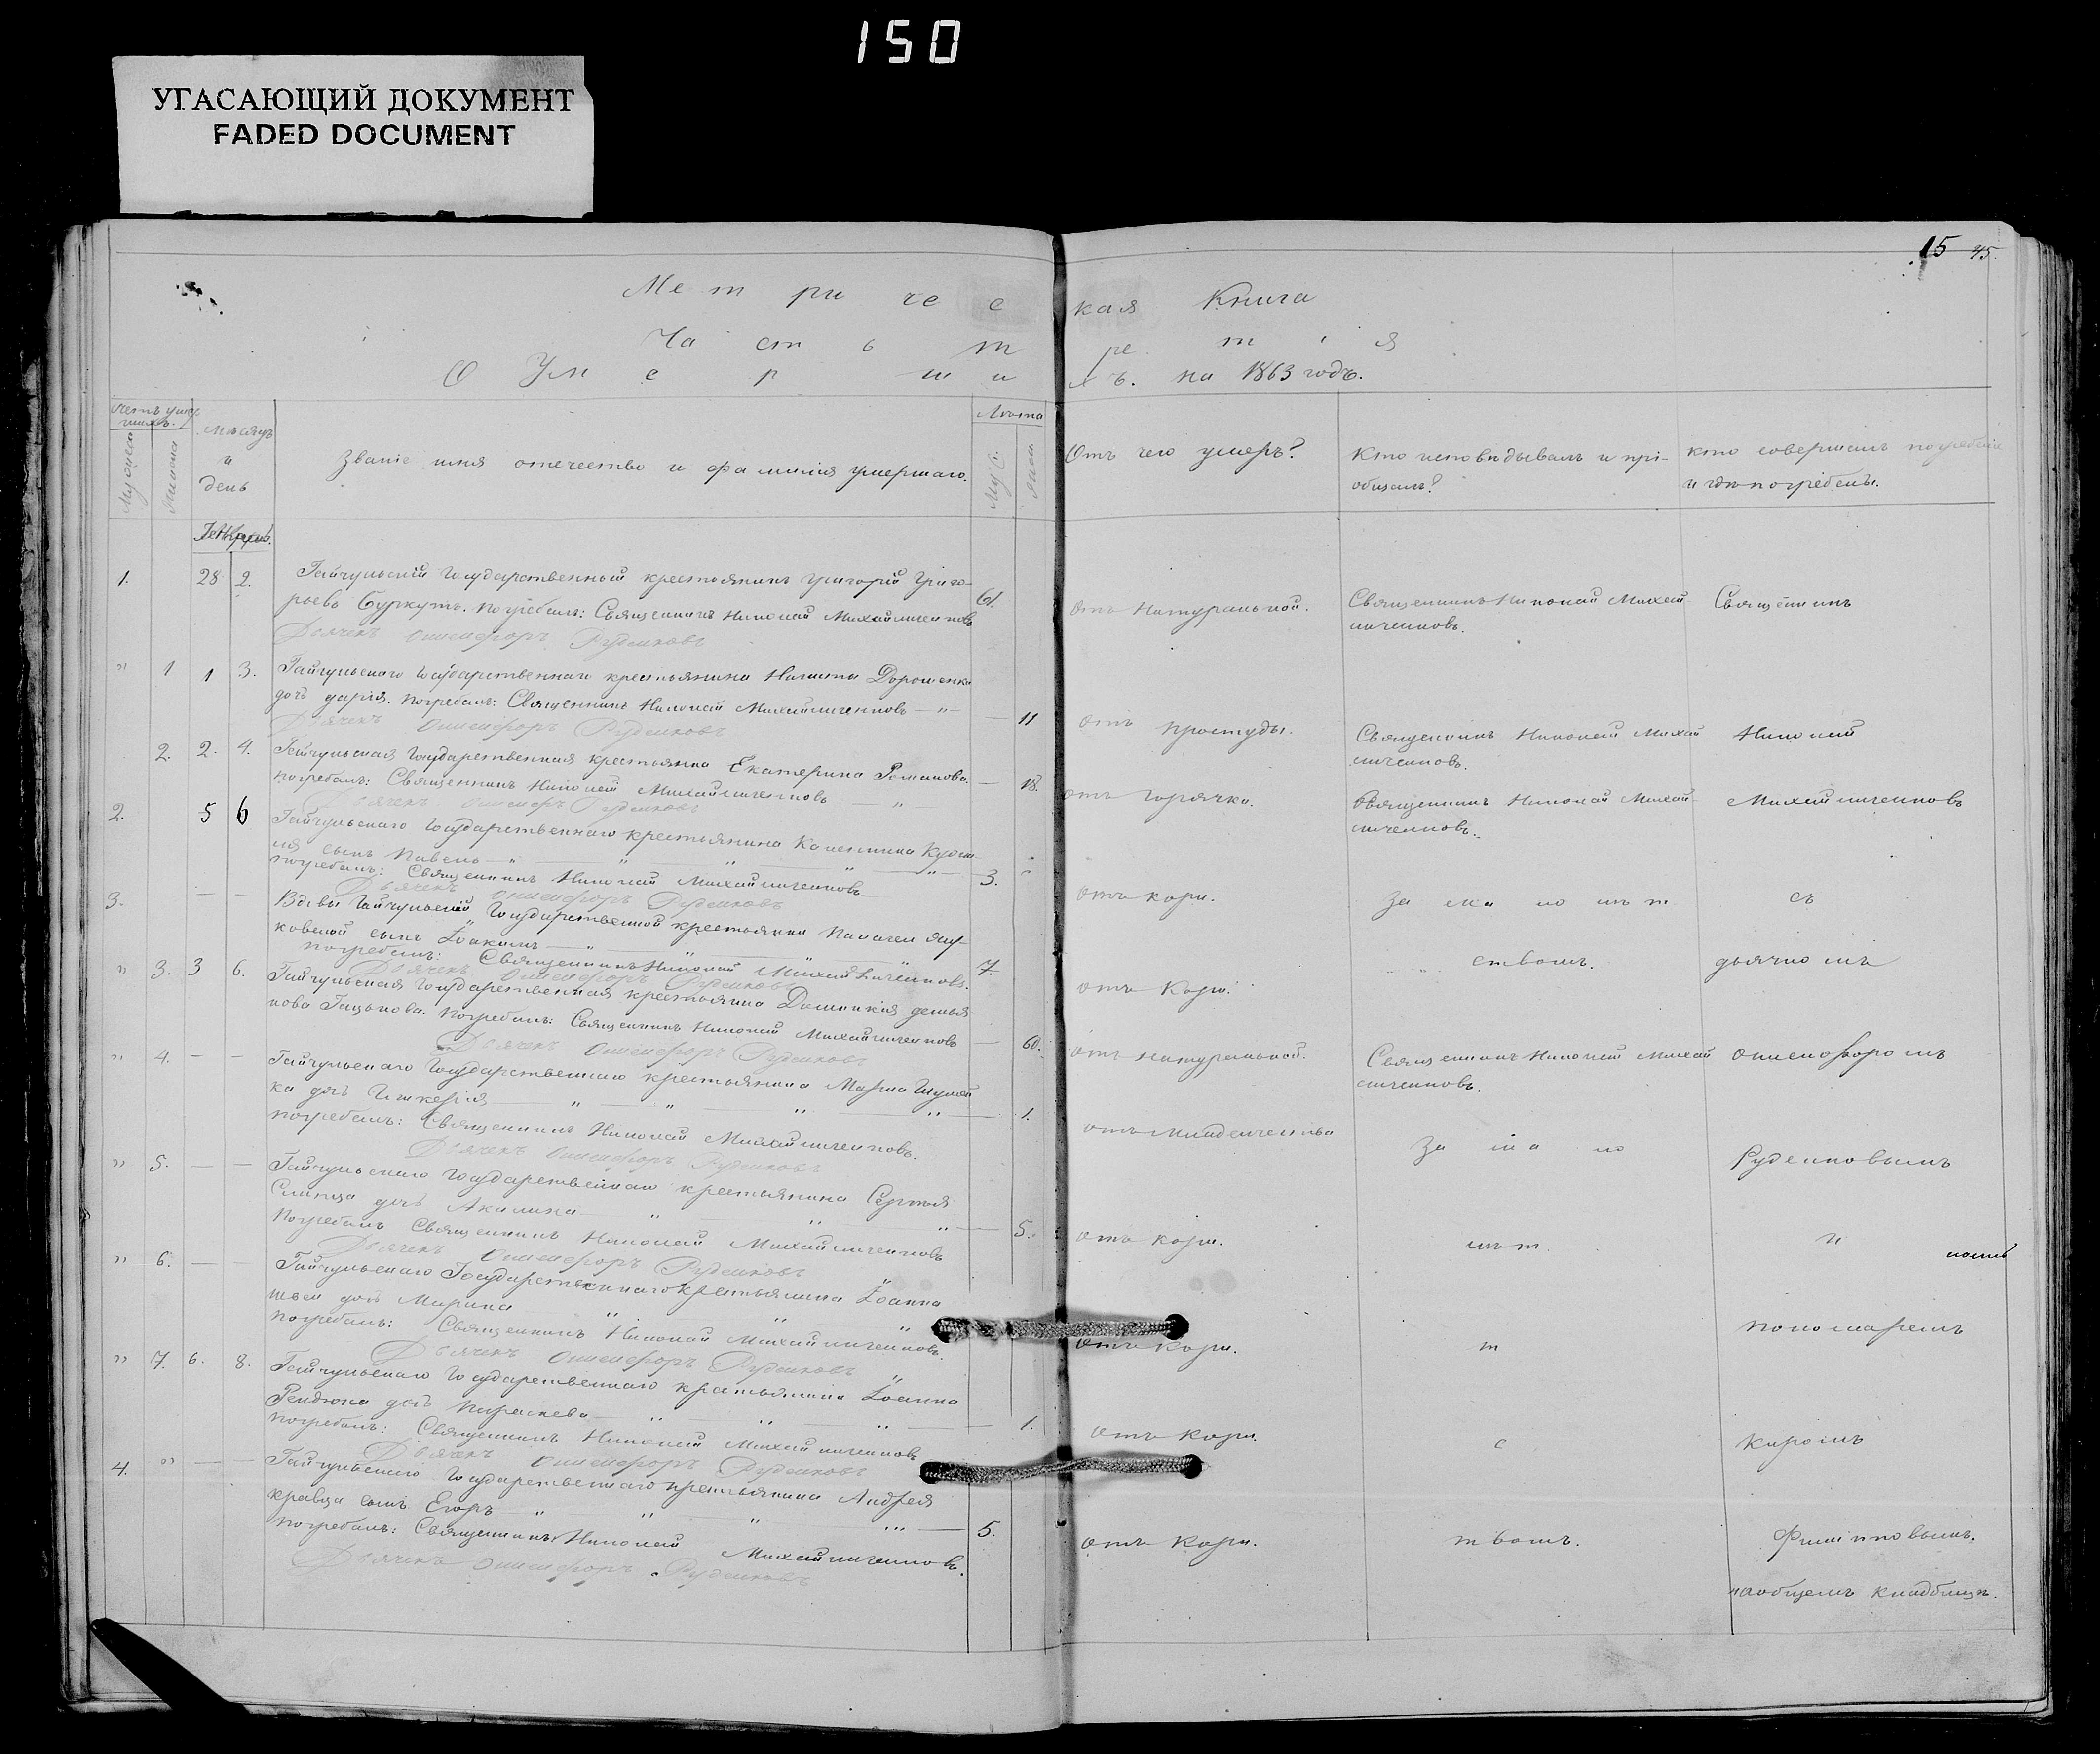 150
УГАСАЮЩИЙ ДОКУМЕНТ
FADED DOCUMENT
15 45.
Метрическая Книга
Часть третія
О Умершихъ. на 1863 годъ.
Мѣсяцъ и день
Званіе имя отечество и фамилія умершаго.
Лѣта
Отъ чего умеръ?
Кто исповѣдывалъ и пріобщалъ?
кто совершалъ погребеніе и гдѣ погребены.
1. 28 2. Гайчульскій Государственный крестьянинъ Григорій Григо-
рьевъ Буркутъ. Погребалъ: Священникъ Николай Михайличенковъ 61.
Дьячекъ Онисифоръ Руденковъ
Отъ Натуральной.
Священникъ Николай Михай-
личенковъ.
Священникъ
" 1 1 3. Гайчульскаго Государственнаго крестьянина Никиты Дорошенка
дочь Дарія. Погребалъ: Священникъ Николай Михайличенковъ — " — 11
Дьячекъ Онисифоръ Руденковъ
отъ простуды.
Священникъ Николай Михай
личенковъ.
Николай
2. 2. 4. Гайчульская Государственная крестьянка Екатерина Романова. — 18.
погребалъ: Священникъ Николай Михайличенковъ — "
Дьячекъ Онисифоръ Руденковъ
отъ горячки.
Священникъ Николай Михай-
личенковъ.
Михайличенковъ
2. 5 6 Гайчульскаго Государственнаго крестьянина
сынъ Павелъ — " — " — " — " — " — 3.
погребалъ: Священникъ Николай Михайличенковъ
Дьячекъ Онисифоръ Руденковъ
отъ кори.
За мало лѣт
съ
3. — — Вдовы Гайчульской Государственной крестьянки
сынъ Іоакимъ — " — 7.
погребалъ: Священникъ Николай Михайличенковъ.
Дьячекъ Онисифоръ Руденковъ
отъ Кори.
ствомъ.
дьячкомъ
" 3. 3 6. Гайчульская Государственная крестьянка Домникія Демья-
нова Гацькова. Погребалъ: Священникъ Николай Михайличенковъ — 60.
Дьячекъ Онисифоръ Руденковъ
отъ натуральной.
Священникъ Николай Михай
личенковъ.
Онисифоромъ
" 4. — — Гайчульскаго Государственнаго крестьянина Марка Шулей
ка дочь Гликерія — " — " — " — " — 1.
погребалъ: Священникъ Николай Михайличенковъ.
Дьячекъ Онисифоръ Руденковъ
отъ Младенчества
За ма ло
Руденковымъ
" 5. — — Гайчульскаго Государственнаго крестьянина Сергѣя
Слипца дочь Акилина — " — " — " — 5.
Погребалъ Священникъ Николай Михайличенковъ
Дьячекъ Онисифоръ Руденковъ
отъ кори.
лѣт.
и
" 6. — — Гайчульскаго Государственнаго крестьянина Іоанна
дочь Марина — " — " — "
погребалъ: Священникъ Николай Михайличенковъ.
Дьячекъ Онисифоръ Руденковъ
отъ кори.
т
пономаремъ
" 7. 6. 8. Гайчульскаго Государственнаго крестьянина Іоанна
Рендюка дочь Параскева — " — " — " — 1.
погребалъ: Священникъ Николай Михайличенковъ
Дьячекъ Онисифоръ Руденковъ
отъ кори.
с
Киромъ
4. " — — Гайчульскаго Государственнаго крестьянина Андрея
кравца сынъ Егоръ — " — " — " — " — 5.
погребалъ: Священникъ Николай Михайличенковъ.
Дьячекъ Онисифоръ Руденковъ
отъ Кори.
твомъ.
Филиповымъ.
на общемъ кладбищѣ.